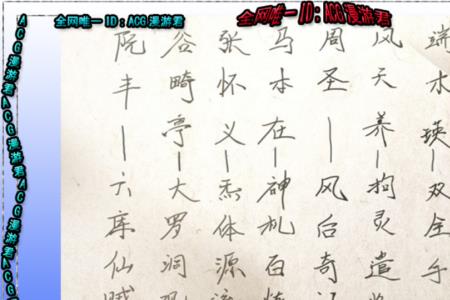 全网唯一ID:ACG漫游君
全网唯一ID:ACG漫游君
ACG漫游君ACG漫游君ACG漫游君ACG
端木瑛—双全手
风天养—拘灵遣
周圣—风后奇
马本在—神机百炼
张怀义—炁体源流
谷畸亭—大罗洞观
阮丰—六库仙贼